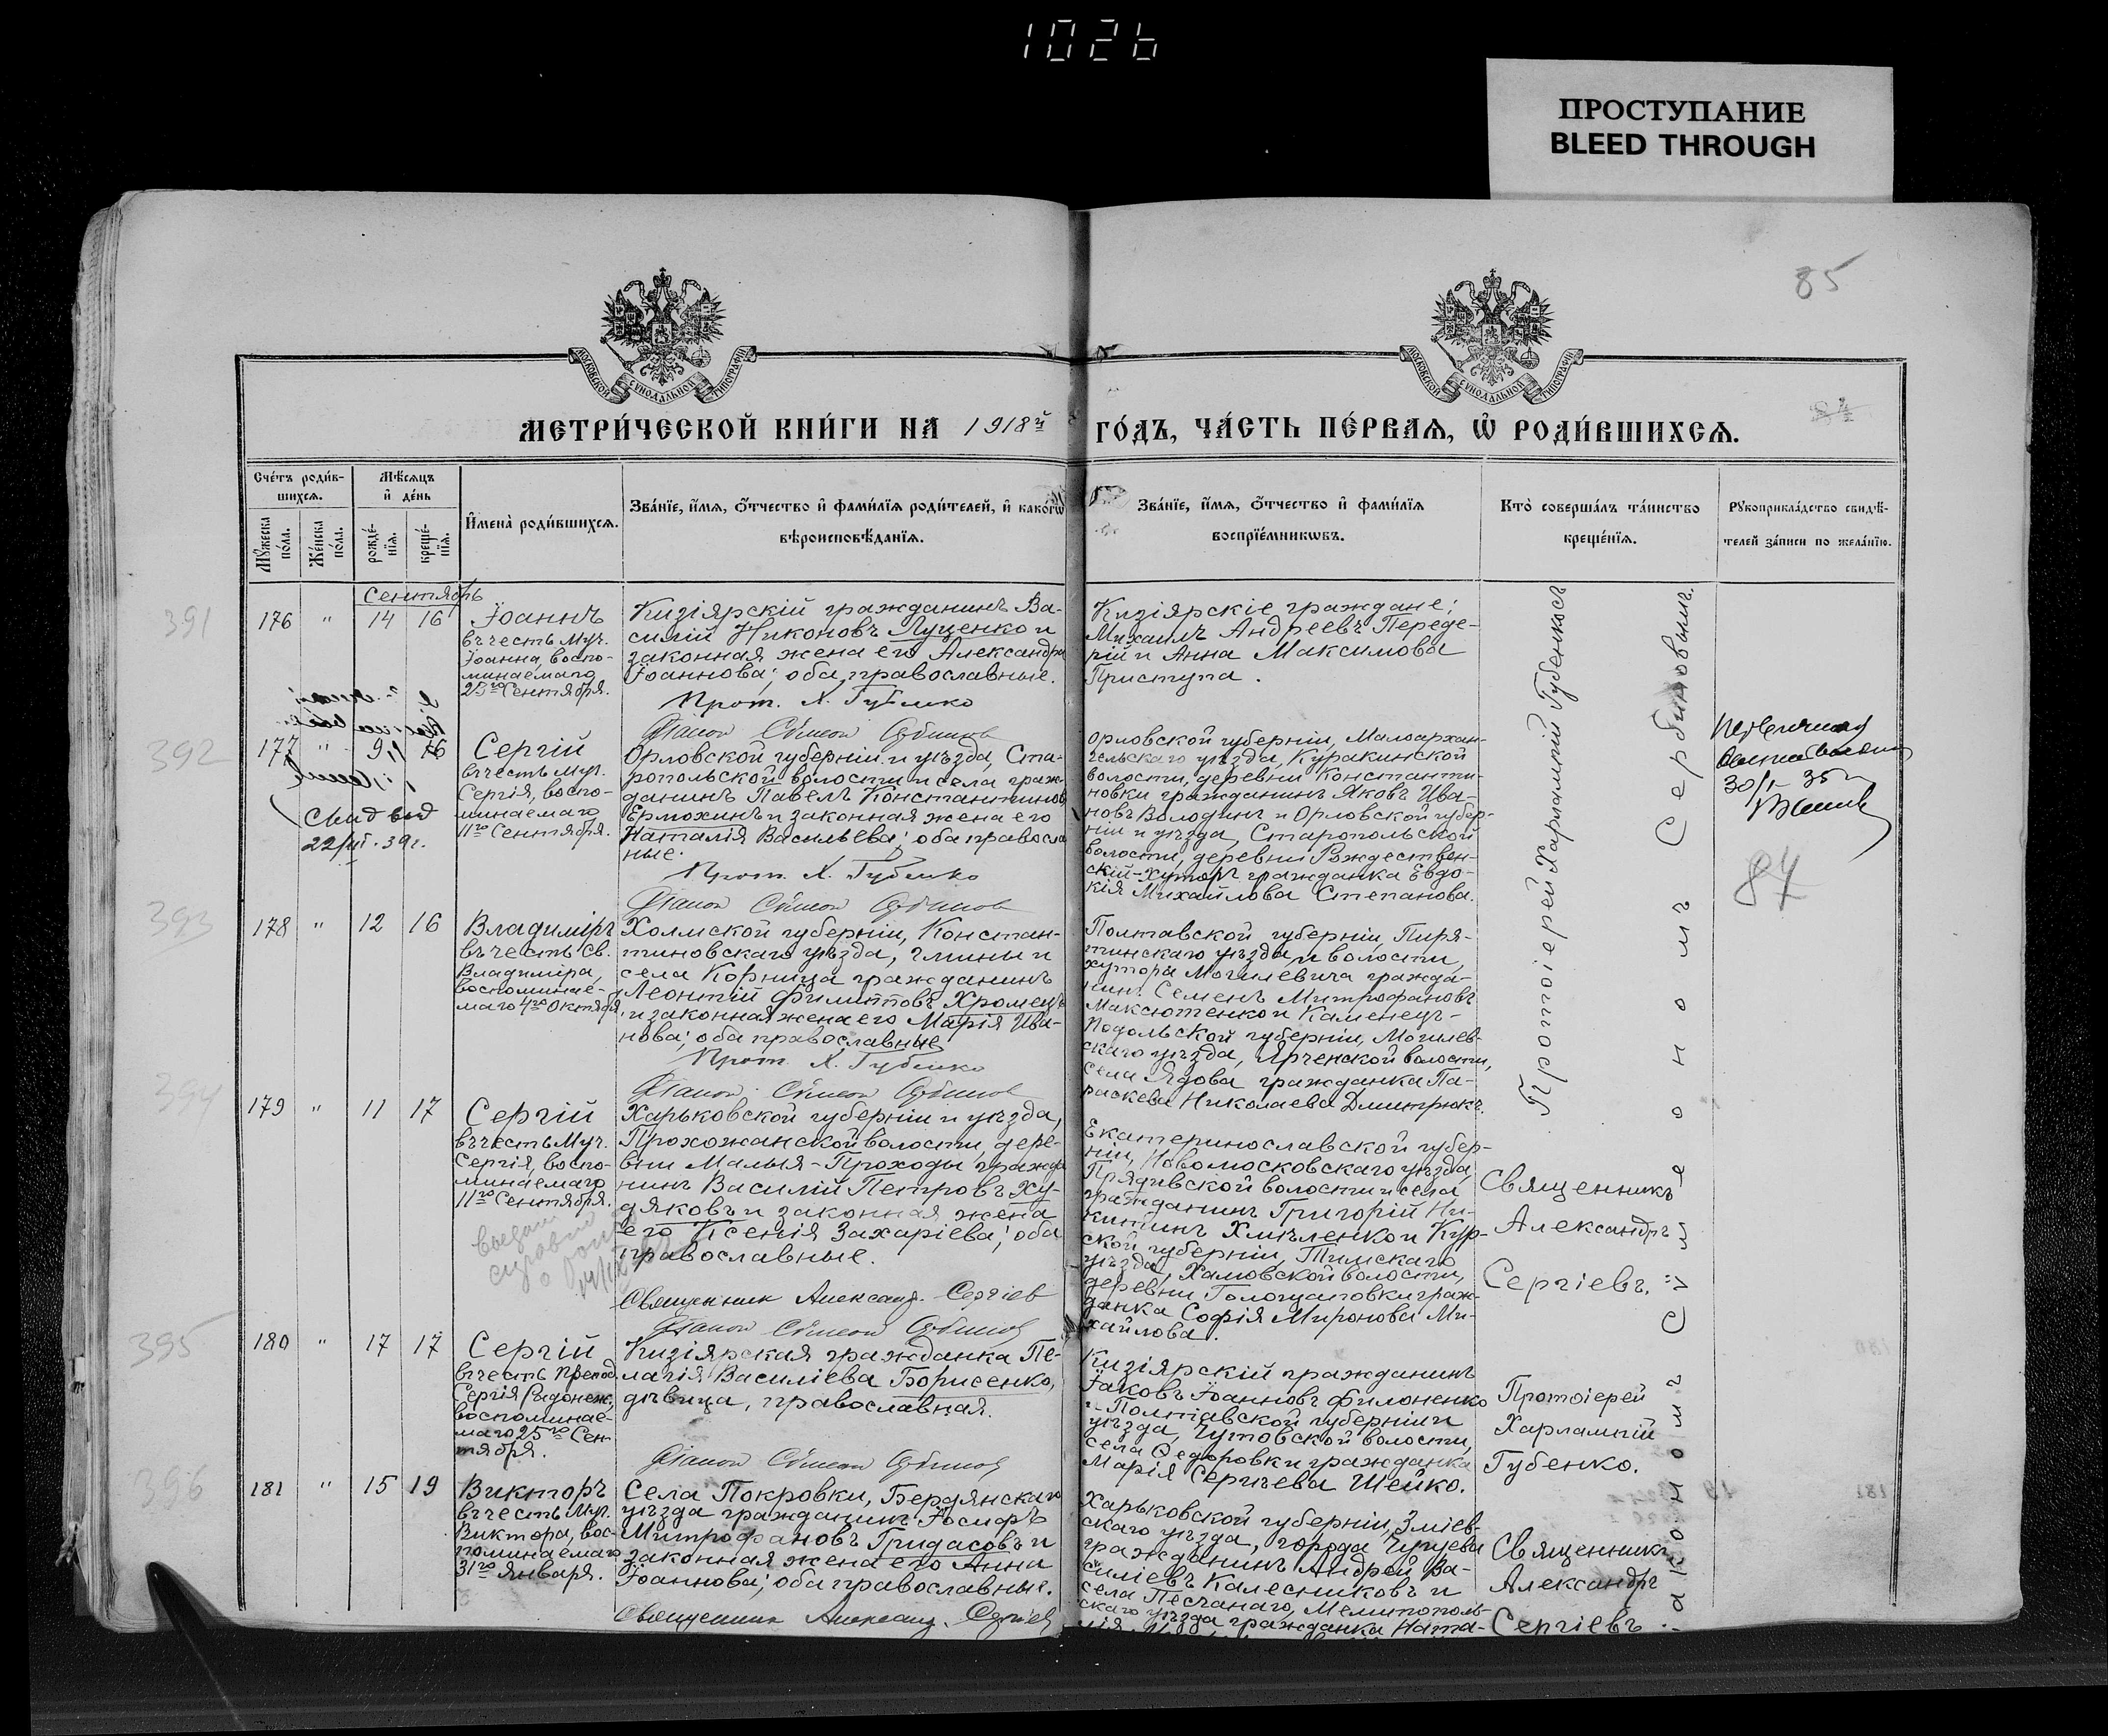 1026
ПРОСТУПАНИЕ
BLEED THROUGH
85
МОСКОВСКОЙ СѴНОДАЛЬНОЙ ТИПОГРАФІИ
МОСКОВСКОЙ СѴНОДАЛЬНОЙ ТИПОГРАФІИ
МЕТРИ́ЧЕСКОЙ КНИ́ГИ НА 1918й ГО́ДЪ, ЧА́СТЬ ПЕ́РВАЯ, Ѡ РОДИ́ВШИХСЯ.
Сче́тъ роди́в-
шихся.
Мѣ́сяцъ
и҆ де́нь
Мꙋ́жеска по́ла.
Же́нска по́ла.
рожде́-
нїя.
креще́-
нїя.
И҆мена̀ роди́вшихся.
Зва́нїе, и҆́мя, ѻ҆́тчество и҆ фами́лїя роди́телей, и҆ како́гѡ
вѣроисповѣ́данїя.
Зва́нїе, и҆́мя, ѻ҆́тчество и҆ фами́лїя
воспрїе́мникѡвъ.
Кто̀ соверша́лъ та́инство
креще́нїя.
Рꙋкоприкла́дство свидѣ́-
телей за́писи по жела́нїю.
Сентябрь
391
176 " 14 16
Іоаннъ
въ честь Муч.
Іоанна, воспо-
минаемаго
25го Сентября.
Кизіярскій гражданинъ Ва-
силій Никоновъ Луценко и
законная жена его Александра
Іоаннова; оба православные.
Прот. Х. Губенко
Кизіярскіе граждане:
Михаилъ Андреевъ Переде-
рій и Анна Максимова
Приступа.
Протоіерей Харлампій Губенко съ
392
177 " 9 16
Свид выд
22/III-39г.
Сергій
въ честь Муч.
Сергія, воспо-
минаемаго
11го Сентября.
Орловской губерніи и уѣзда, Ста-
ропольской волости и села граж-
данинъ Павелъ Константиновъ
Ермохинъ и законная жена его
Наталія Васильева; оба правосла
ные.
Прот. Х. Губенко
Орловской губерніи, Малоархан-
гельскаго уѣзда, Куракинской
волости, деревни Константи-
новки гражданинъ Яковъ Ива-
новъ Володинъ и Орловской губер-
ніи и уѣзда, Старопольской
волости, деревни Рождествен-
скій-Хуторъ гражданка Евдо-
кія Михайлова Степанова.
30/I 35г
87
393
178 " 12 16
Владиміръ
въ честь Св.
Владиміра,
воспоминае-
маго 4го Октября
Холмской губерніи, Констан-
тиновскаго уѣзда, гмины и
села Корница гражданинъ
Леонтій Филипповъ Хромецъ
и законная жена его Марія Ива-
нова; оба православные
Прот. Х. Губенко
Полтавской губерніи, Пиря-
тинскаго уѣзда и волости,
хутора Могилевича гражда-
нинъ Семенъ Митрофановъ
Максютенко и Каменецъ-
Подольской губерніи, Могилев-
скаго уѣзда, Ярченской волости,
села Ядова гражданка Па-
раскева Николаева Дмитрюкъ.
394
179 " 11 17
Сергій
въ честь Муч.
Сергія, воспо-
минаемаго
11го Сентября.
Харьковской губерніи и уѣзда,
Прохожанской волости, дере-
вни Малыя-Проходы гражда
нинъ Василій Петровъ Ху-
дяковъ и законная жена
его Ксенія Захаріева; оба
православные.
Священник Александр Сергіев
Екатеринославской губер-
ніи, Новомосковскаго уѣзда,
Прядивской волости и села
гражданинъ Григорій Ни-
китинъ Хмѣленко и Кур-
ской губерніи, Тимскаго
уѣзда, Хамовской волости,
деревни граж-
данка Софія Миронова Ми-
хайлова.
Священникъ
Александръ
Сергіевъ.
395
180 " 17 17
Сергій
въ честь Препод.
Сергія Радонеж.,
воспоминае-
маго 25го Сен-
тября.
Кизіярская гражданка Пе-
лагія Василіева Борисенко,
дѣвица, православная.
Кизіярскій гражданинъ
Іаковъ Іоанновъ Филоненко
и Полтавской губерніи и
уѣзда, Чутовской волости,
села Ѳедоровки гражданка
Марія Сергѣева Шейко.
Протоіерей
Харлампій
Губенко.
396
181 " 15 19
Викторъ
въ честь Муч.
Виктора, вос-
поминаемаго
31го Января.
Села Покровки, Бердянскаго
уѣзда гражданинъ Іосифъ
Митрофановъ Гридасовъ и
законная жена его Анна
Іоаннова; оба православные.
Священник Александ. Сергіев
Харьковской губерніи, Зміев-
скаго уѣзда, города Чугуева
гражданинъ Андрей Ва-
силіевъ Калесниковъ и
села Песчанаго, Мелитополь-
скаго уѣзда гражданка Ната-
Священникъ
Александръ
Сергіевъ